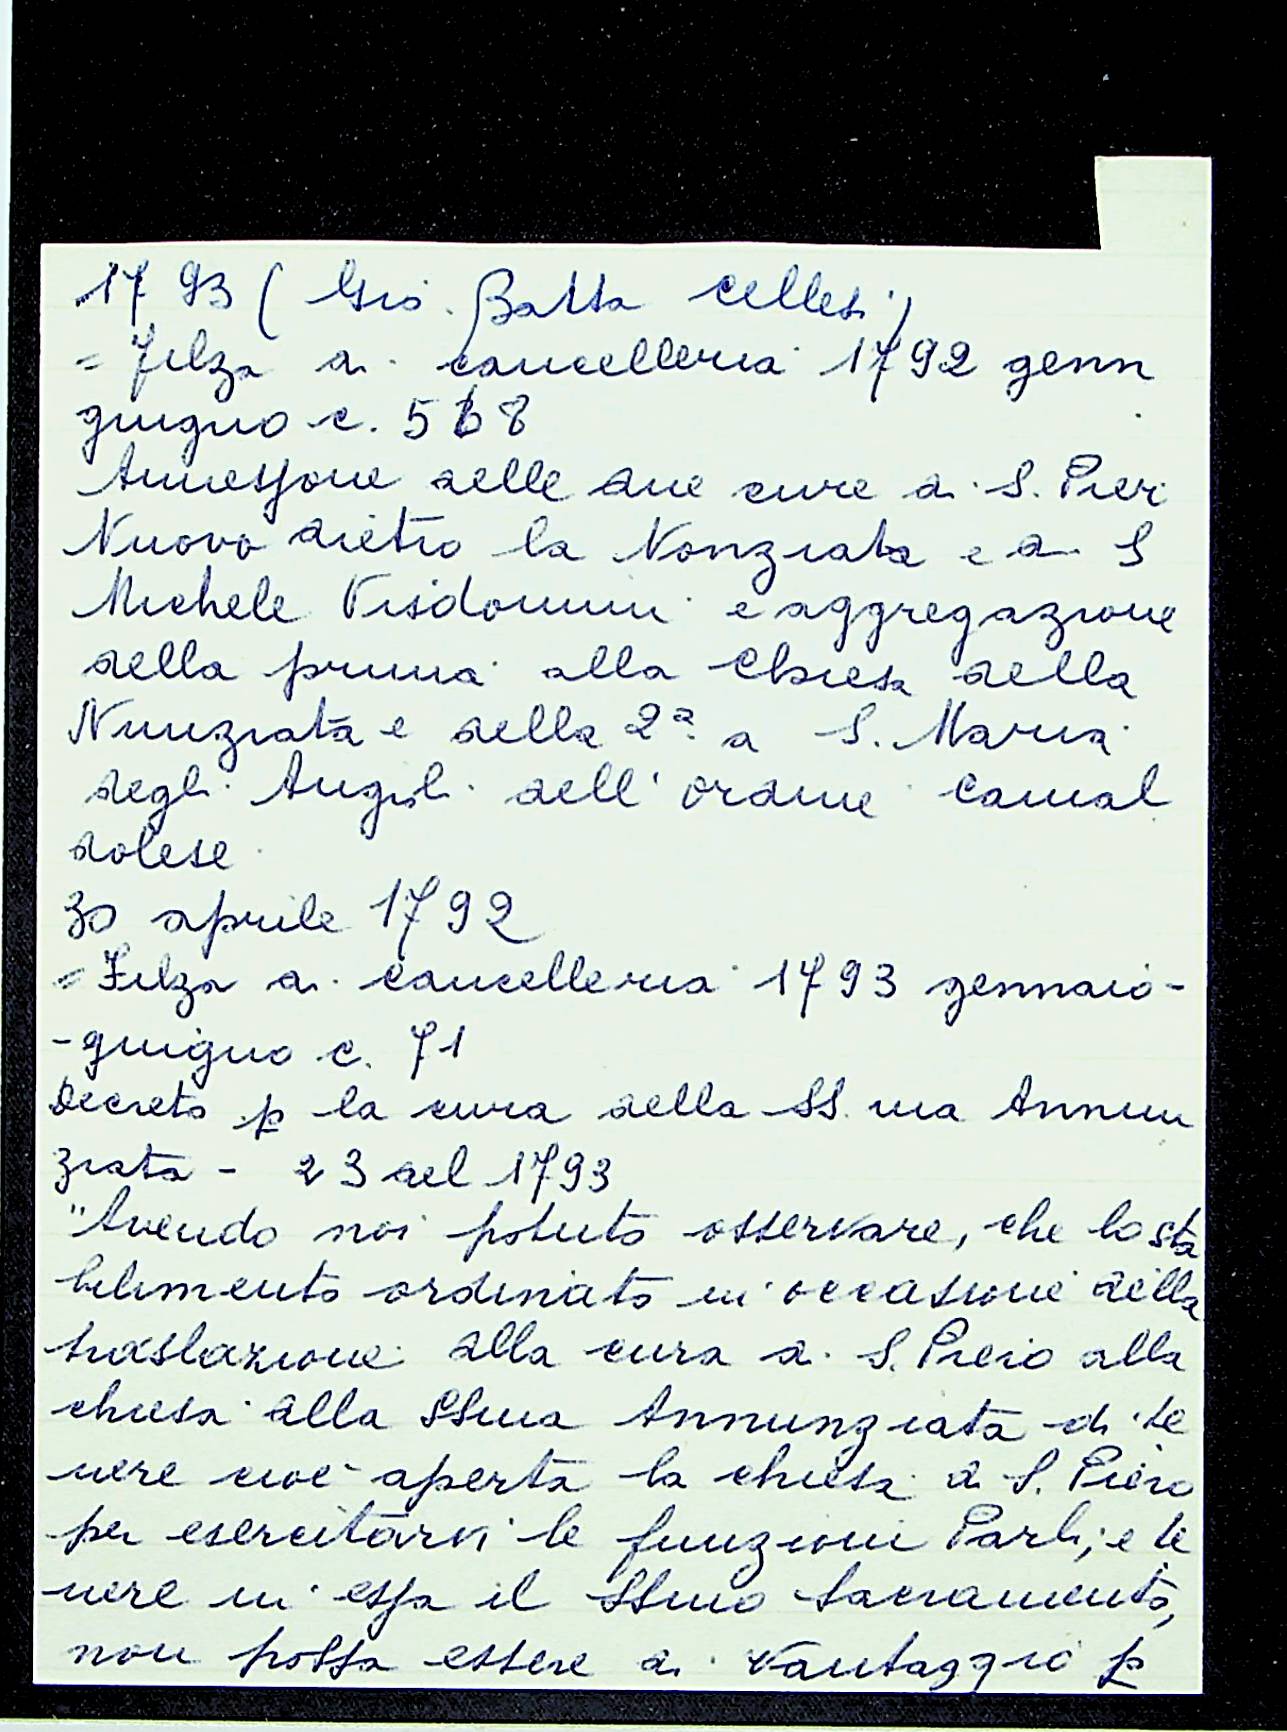 1793 ( Gio. Batta Cellesi)
= Filza di cancelleria 1792 genn
giugno c. 568
Annessione delle due cure di S. Pier
Nuovo dietro la Nonziata e di S
Michele Visdomini e aggregazione
della prima alla Chiesa della
Nunziata e della 2ª a S. Maria
degli Angioli dell'ordine Camal
dolese
30 aprile 1792
= Filza di cancelleria 1793 gennaio-
-giugno c. 71
Decreto p la cura della SS.ma Annun
ziata - 23 del 1793
"Avendo noi potuto osservare, che lo sta
bilimento ordinato in occasione della
traslazione della cura di S. Piero alla
chiesa della SSma Annunziata di te
nere cioè aperta la chiesa di S. Piero
per esercitarvi le funzioni Parli; e te
nere in essa il SSmo Sacramento,
non possa essere di vantaggio p